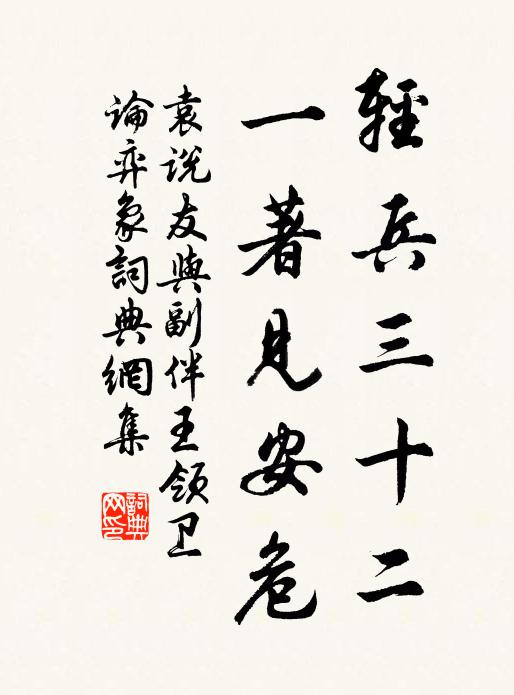 輕兵三十二
一著見安危
袁说友與副伴王領卫
論弈象詞典網集
詞典
网印